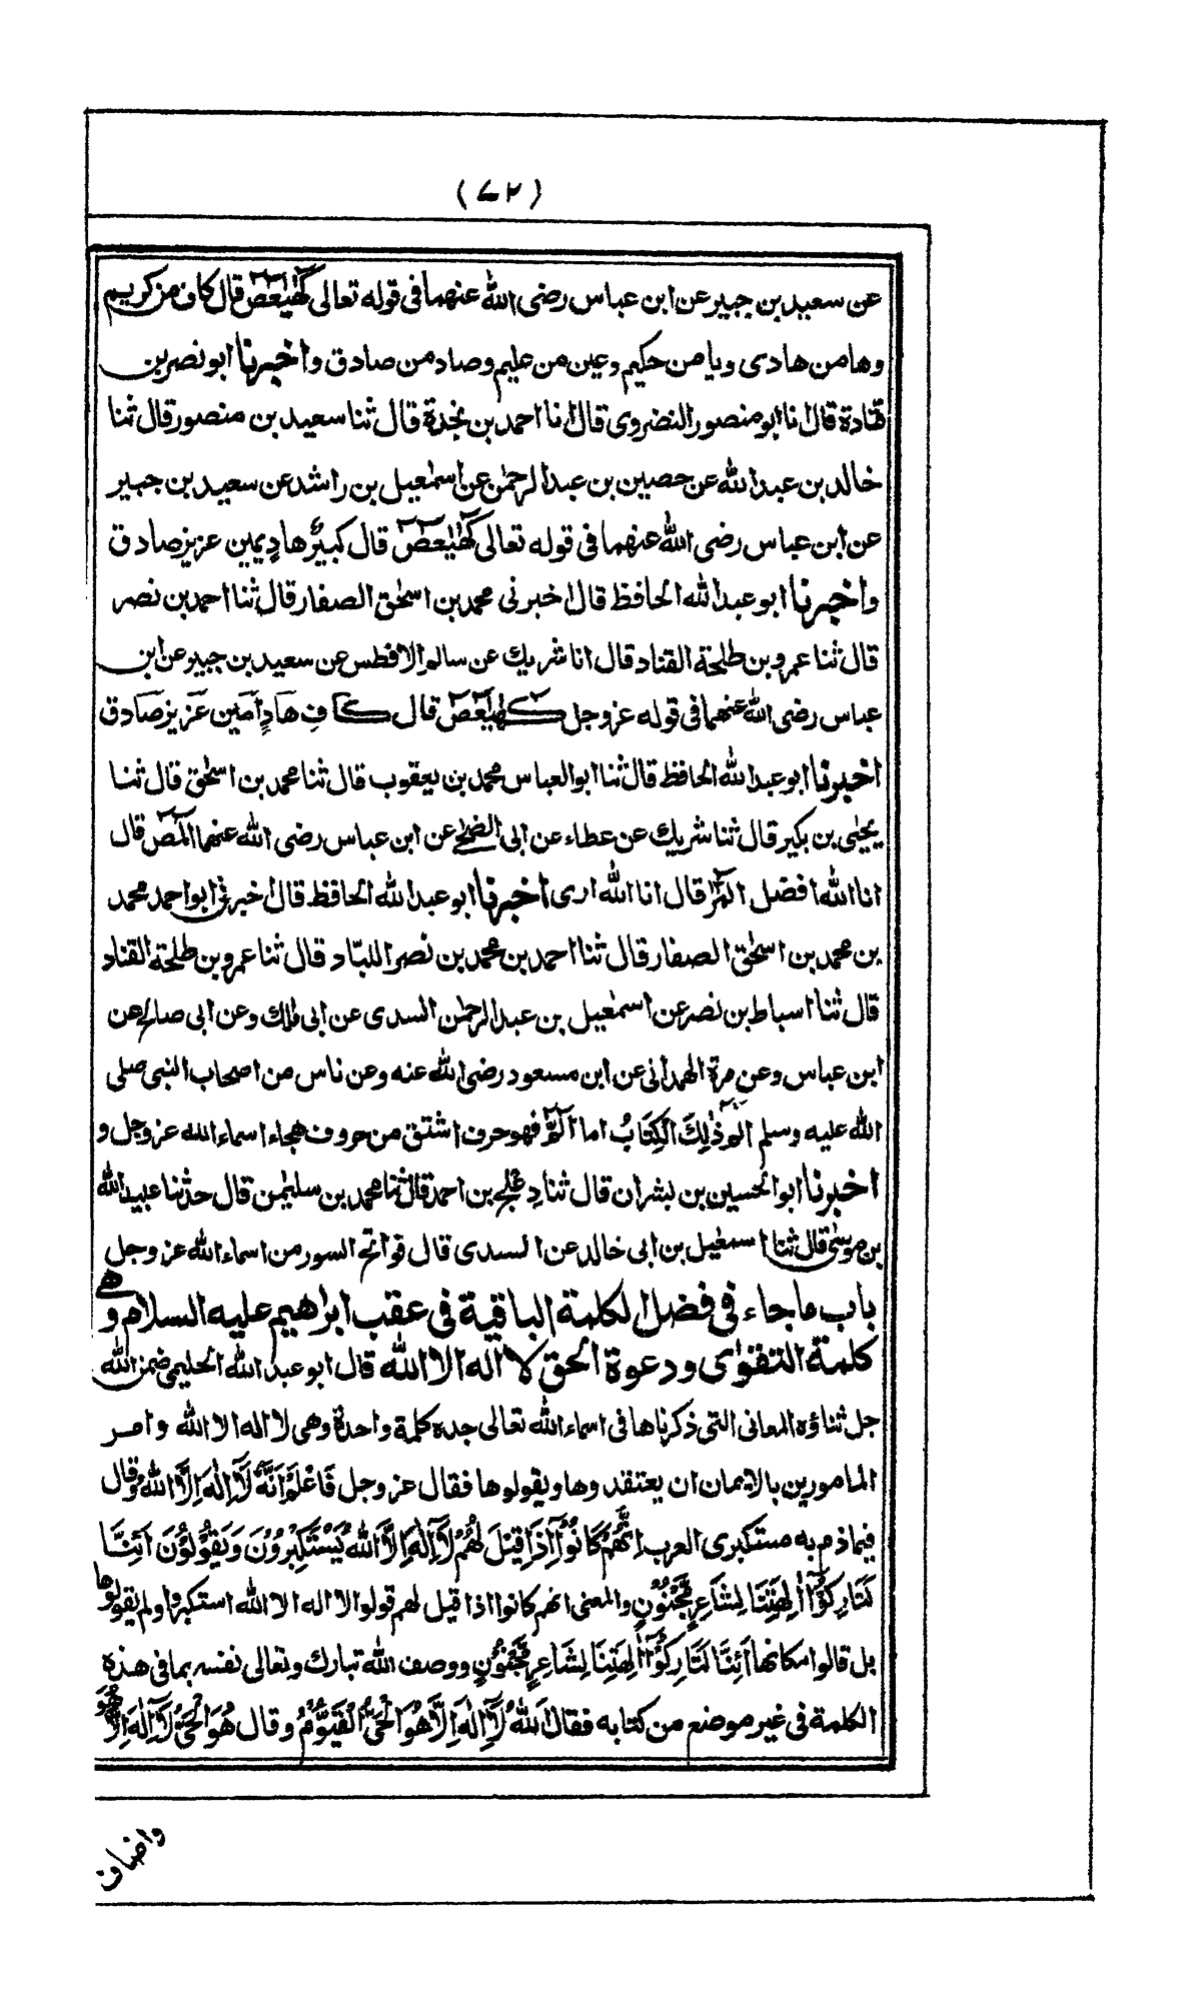 (۷۲)
عن سعيد بن جبير عن ابن عباس رضى الله عنهما فى قوله تعالى كهيعص قال كاف من كريم
وها من هادى ويا من حكيم وعين من عليم وصاد من صادق واخبرنا ابو نصر بن
قتادة قال انا ابو منصور النضروى قال انا احمد بن نجدة قال ثنا سعيد بن منصور قال ثنا
خالد بن عبد الله عن حصين بن عبد الرحمن عن اسمعيل بن راشد عن سعيد بن جبير
عن ابن عباس رضى الله عنهما فى قوله تعالى كهيعص قال كبير هاد يمين عزيز صادق
واخبرنا ابو عبد الله الحافظ قال اخبرنى محمد بن اسحق الصفار قال ثنا احمد بن نصر
قال ثنا عمرو بن طلحة القناد قال انا شريك عن سالم الافطس عن سعيد بن جبير عن ابن
عباس رضى الله عنهما فى قوله عز وجل كهيعص قال كاف هَادٍ اَمين عَزيز صَادق
اخبرنا ابو عبد الله الحافظ قال ثنا ابو العباس محمد بن يعقوب قال ثنا محمد بن اسحق قال ثنا
يحيى بن بكير قال ثنا شريك عن عطاء عن ابى الضحى عن ابن عباس رضى الله عنهما المص قال
انا الله افضل المر قال انا الله ارى اخبرنا ابو عبد الله الحافظ قال اخبرنى ابو احمد محمد
بن محمد بن اسحق الصفار قال ثنا احمد بن محمد بن نصر اللبّاد قال ثنا عمرو بن طلحة القناد
قال ثنا اسباط بن نصر عن اسمعيل بن عبد الرحمن السدى عن ابى مالك وعن ابى صالح عن
ابن عباس وعن مرة الهمدانى عن ابن مسعود رضى الله عنه وعن ناس من اصحاب النبى صلى
الله عليه وسلم الم ذٰلِكَ الْكِتَابُ اما الم فهو حرف اشتق من حروف هجاء اسماء الله عز وجل و
اخبرنا ابو الحسين بن بشران قال ثنا دعلج بن احمد قال ثنا محمد بن سليمن قال حدثنا عبيد الله
بن موسى قال ثنا اسمعيل بن ابى خالد عن السدى قال فواتح السور من اسماء الله عز وجل
باب ما جاء فى فضل الكلمة الباقية فى عقب ابراهيم عليه السلام وهى
كلمة التقوى ودعوة الحق لا اله الا الله قال ابو عبد الله الحليمى ضمن الله
جل ثناؤه المعانى التى ذكرناها فى اسماء الله تعالى جده كلمة واحدة وهى لا اله الا الله وامر
المامورين بالايمان ان يعتقدوها ويقولوها فقال عز وجل فَاعْلَمْ اَنَّهُ لَا اِلٰهَ اِلَّا اللهُ وقال
فيما ذم به مستكبرى العرب اِنَّهُمْ كَانُوْا اِذَا قِيْلَ لَهُمْ لَا اِلٰهَ اِلَّا اللهُ يَسْتَكْبِرُوْنَ وَيَقُوْلُوْنَ اَئِنَّا
لَتَارِكُوْا اٰلِهَتِنَا لِشَاعِرٍ مَّجْنُوْنٍ والمعنى انهم كانوا اذا قيل لهم قولوا لا اله الا الله استكبروا ولم يقولوها
بل قالوا مكانها اَئِنَّا لَتَارِكُوْا اٰلِهَتِنَا لِشَاعِرٍ مَّجْنُوْنٍ ووصف الله تبارك وتعالى نفسه بما فى هذه
الكلمة فى غير موضع من كتابه فقال اَللهُ لَا اِلٰهَ اِلَّا هُوَ الْحَىُّ الْقَيُّوْمُ وقال هُوَ الْحَىُّ لَا اِلٰهَ اِلَّا هُوَ
واضاف